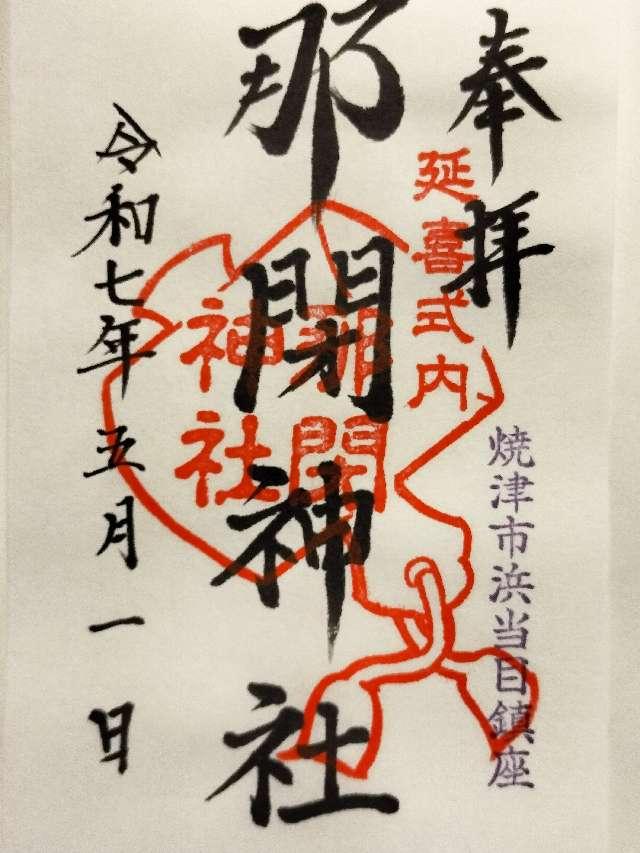 奉拝
延喜式内
焼津市浜当目鎮座
那閉神社
那閉
神社
令和七年五月一日